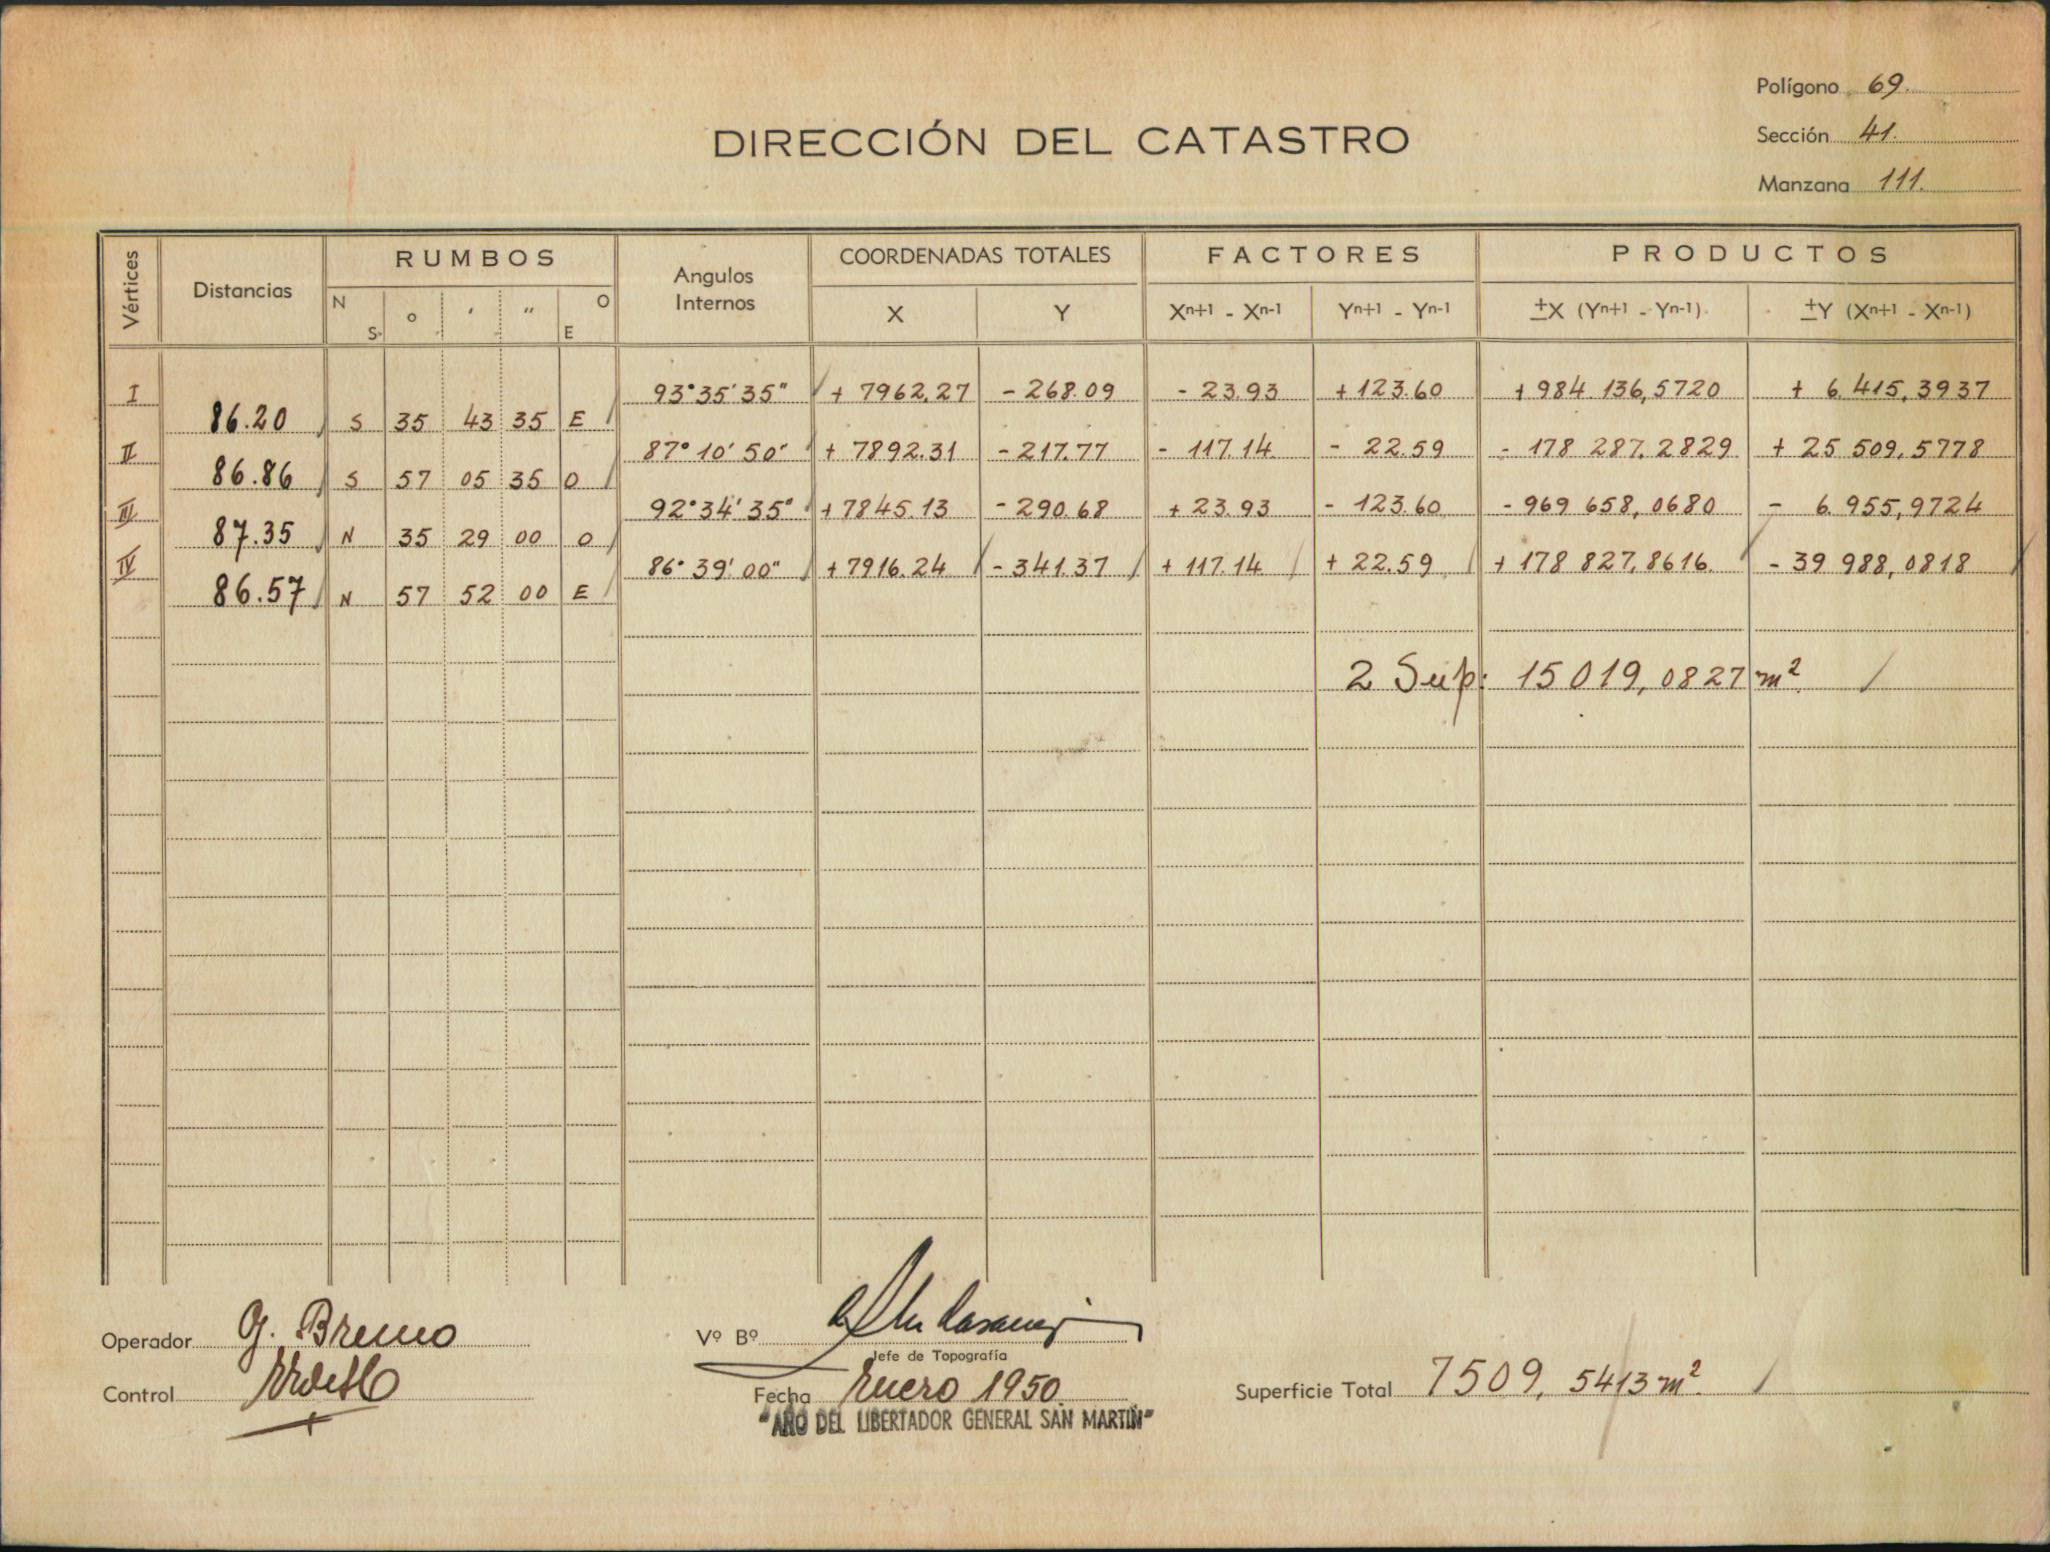 Polígono 69.
DIRECCIÓN DEL CATASTRO
Sección 41.
Manzana 111.
Vértices Distancias RUMBOS Angulos Internos COORDENADAS TOTALES FACTORES PRODUCTOS
N S o ' " O E X Y Xn+1 - Xn-1 Yn+1 - Yn-1 ±X (Yn+1 - Yn-1) ±Y (Xn+1 - Xn-1)
I 93°35'35" + 7962,27 - 268.09 - 23.93 + 123.60 + 984 136,5720 + 6.415,3937
86.20 S 35 43 35 E
II 87°10'50" + 7892.31 - 217.77 - 117.14 - 22.59 - 178 287.2829 + 25 509,5778
86.86 S 57 05 35 O
III 92°34'35" + 7845.13 - 290.68 + 23.93 - 123.60 - 969 658,0680 - 6.955,9724
87.35 N 35 29 00 O
IV 86°39'00" + 7916.24 - 341.37 + 117.14 + 22.59 + 178 827,8616 - 39 988,0818
86.57 N 57 52 00 E
2 Sup: 15 019,0827 m²
Operador G. Bruno
Vº Bº
Jefe de Topografía
Control
Fecha Enero 1950
Superficie Total 7509, 5413 m².
"AÑO DEL LIBERTADOR GENERAL SAN MARTIN"